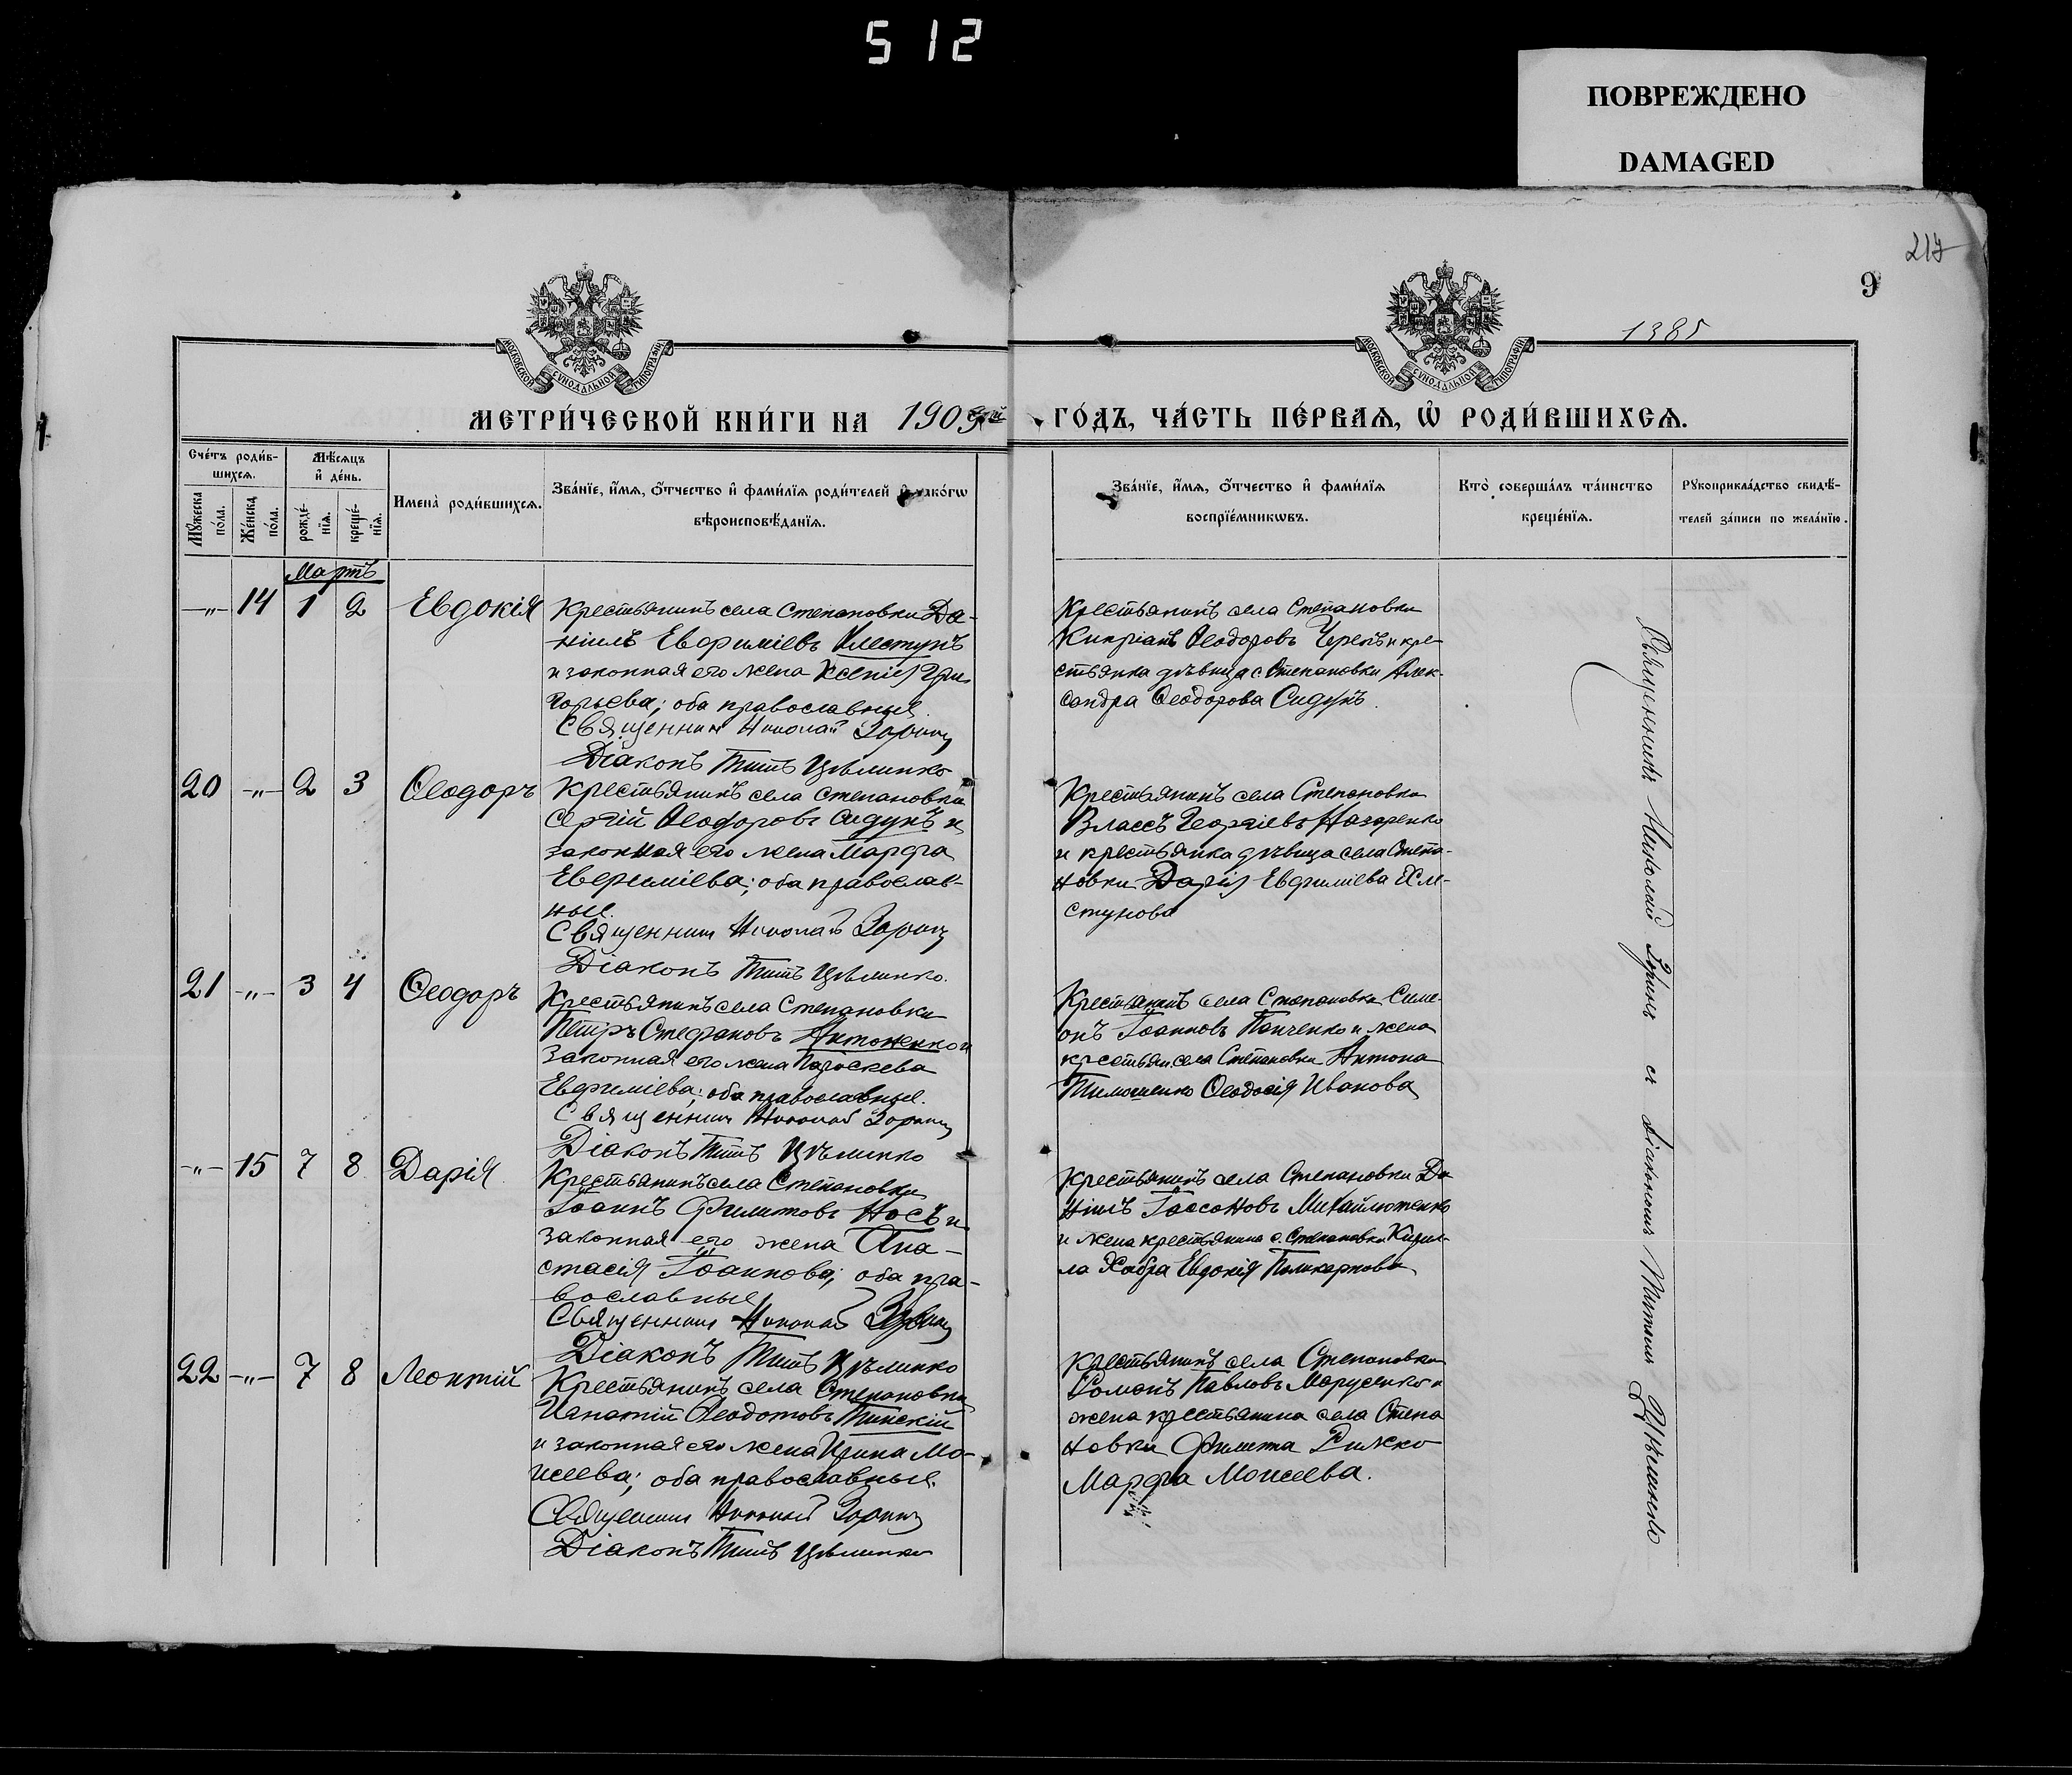 512
ПОВРЕЖДЕНО
DAMAGED
217
9
1385
МОСКОВСКОЙ СѴНОДАЛЬНОЙ ТИПОГРАФІИ
МОСКОВСКОЙ СѴНОДАЛЬНОЙ ТИПОГРАФІИ
МЕТРИ́ЧЕСКОЙ КНИ́ГИ НА 1909
ГО́ДЪ, ЧА́СТЬ ПЕ́РВАѦ, Ѿ РОДИ́ВШИХСѦ.
Сче́тъ роди́в-
шихсѧ.
Мꙋжеска по́ла.
Же́нска по́ла.
Мѣ́сѧцъ
и҆ де́нь.
рожде́-
нїѧ.
креще́-
нїѧ.
Имена̀ роди́вшихсѧ.
Зва́нїе, и҆́мѧ, ѻ҆́тчество и҆ фами́лїѧ роди́телей и҆ како́гѡ
вѣроисповѣ́данїѧ.
Зва́нїе, и҆́мѧ, ѻ҆́тчество и҆ фами́лїѧ
воспрїе́мникѡвъ.
Кто̀ соверша́лъ та́инство
креще́нїѧ.
Рꙋкоприкла́дство свидѣ́-
телей за́писи по жела́нїю.
Мартъ
—„— 14 1 2 Евдокія
Крестьянинъ села Степановки Да-
ніилъ Евфиміевъ Хлестунъ
и законная его жена Ксенія Гри-
горьева; оба православные.
Священник Николай Зоринъ
Діаконъ Титъ Цѣлинко
Крестьянинъ села Степановки
Кипріанъ Ѳеодоровъ Черепъ и кре-
стьянка дѣвица с. Степановки Алек-
сандра Ѳеодорова Сидунъ.
20 —„— 2 3 Ѳеодоръ
Крестьянинъ села Степановки
Сергій Ѳеодоровъ Сидунъ и
законная его жена Марфа
Евфиміева; оба православ-
ные.
Священник Николай Зоринъ
Діаконъ Титъ Цѣлинко.
Крестьянинъ села Степановки
Власъ Георгіевъ Назаренко
и крестьянка дѣвица села Степа-
новки Дарія Евфиміева Хле-
стунова
21 —„— 3 4 Ѳеодоръ
Крестьянинъ села Степановки
Петръ Стефановъ Антоненко и
законная его жена Параскева
Евфиміева; оба православные.
Священник Николай Зоринъ
Діаконъ Титъ Цѣлинко
Крестьянинъ села Степановки Симе-
онъ Іоанновъ Панченко и жена
крестьян. села Степановки Антона
Тимошенко Ѳеодосія Иванова
—„— 15 7 8 Дарія
Крестьянинъ села Степановки
Іоаннъ Филитовъ Носъ и
законная его жена Ана-
стасія Іоаннова; оба пра-
вославные
Священник Николай Зоринъ
Діаконъ Титъ Цѣлинко
Крестьянинъ села Степановки Да
ніилъ Іасоновъ Михайлютенко
и жена крестьянина с. Степановки Кирил-
ла Хабра Евдокія Поликарпова
22 —„— 7 8 Леонтій
Крестьянинъ села Степановки
Игнатій Ѳеодотовъ Тинскій
и законная его жена Ирина Мо-
исеева; оба православные.
Священник Николай Зоринъ
Діаконъ Титъ Цѣлинко
Крестьянинъ села Степановки
Романъ Павловъ Марусенко и
жена крестьянина села Степа
новки Филита Рижко
Марфа Моисеева.
Священникъ Николай Зоринъ съ діакономъ Титомъ Цѣлинко